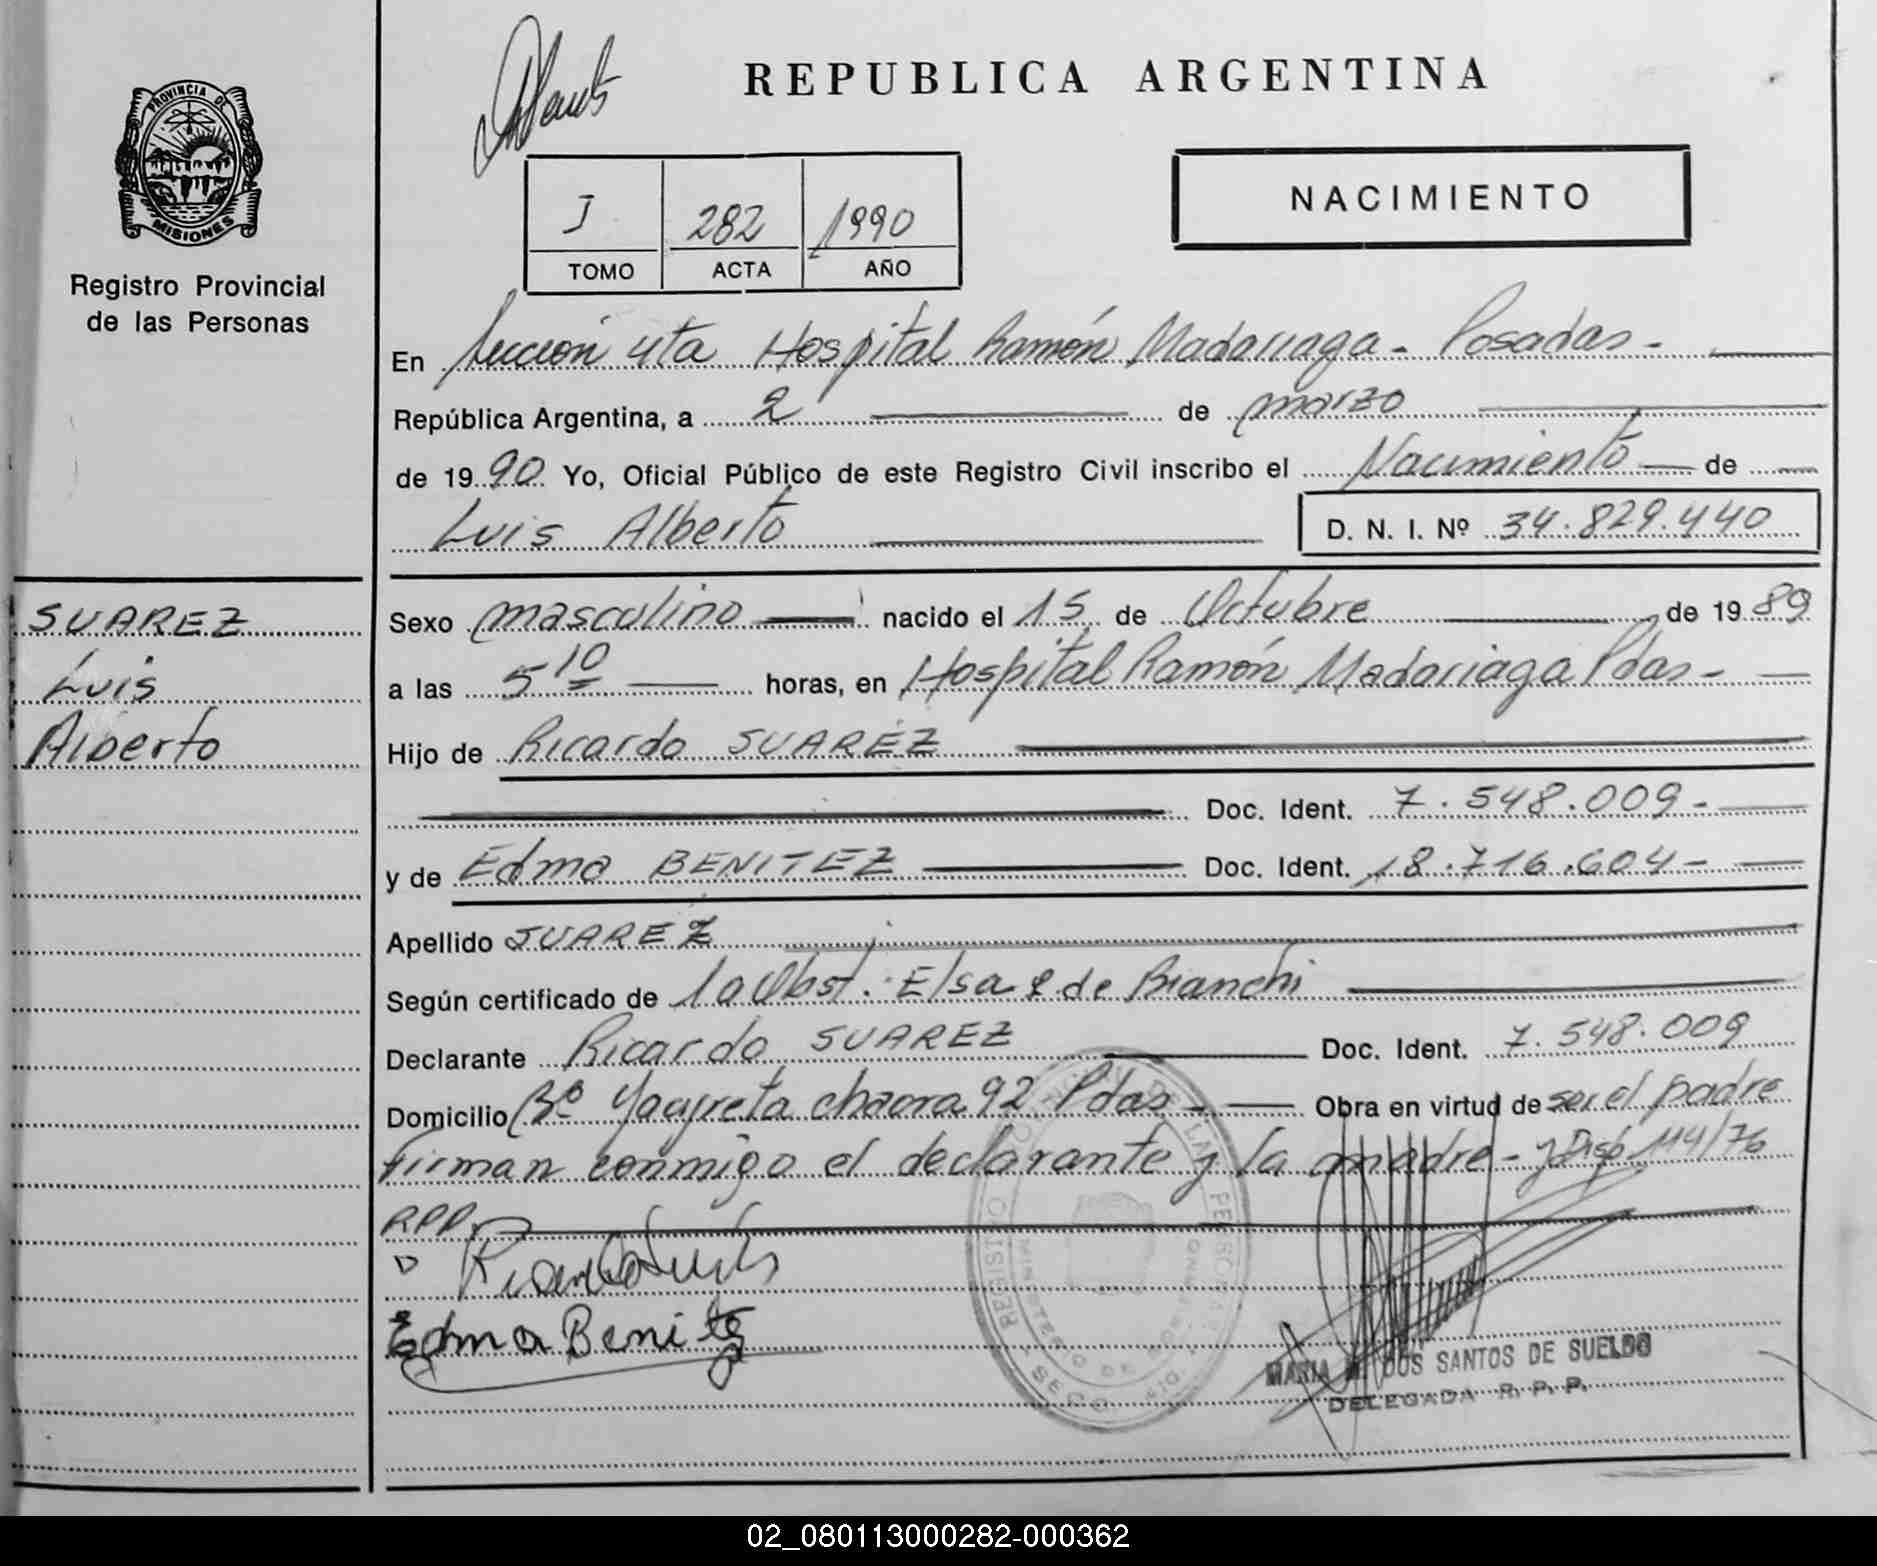 PROVINCIA DE
MISIONES
Registro Provincial
de las Personas
SUAREZ
Luis
Alberto
REPUBLICA ARGENTINA
NACIMIENTO
J 282 1990
TOMO ACTA AÑO
En Sección 4ta Hospital Ramón Madariaga - Posadas -
República Argentina, a 2 de marzo
de 1990 Yo, Oficial Público de este Registro Civil inscribo el Nacimiento de
Luis Alberto D. N. I. Nº 34.829.440
Sexo masculino nacido el 15 de Octubre de 1989
a las 5 10 horas, en Hospital Ramón Madariaga Pdas -
Hijo de Ricardo SUAREZ
Doc. Ident. 7.548.009 -
y de Edma BENITEZ Doc. Ident. 18.716.604 -
Apellido SUAREZ
Según certificado de la Obst. Elsa de Bianchi
Declarante Ricardo SUAREZ Doc. Ident. 7.548.009
Domicilio Bº Yacyreta chacra 92 Pdas - Obra en virtud de ser el padre
Firman conmigo el declarante y la madre - y Disp. 114/76
RPP
Edma Benitez
MARIA DOS SANTOS DE SUELDO
DELEGADA R. P. P.
02_080113000282-000362